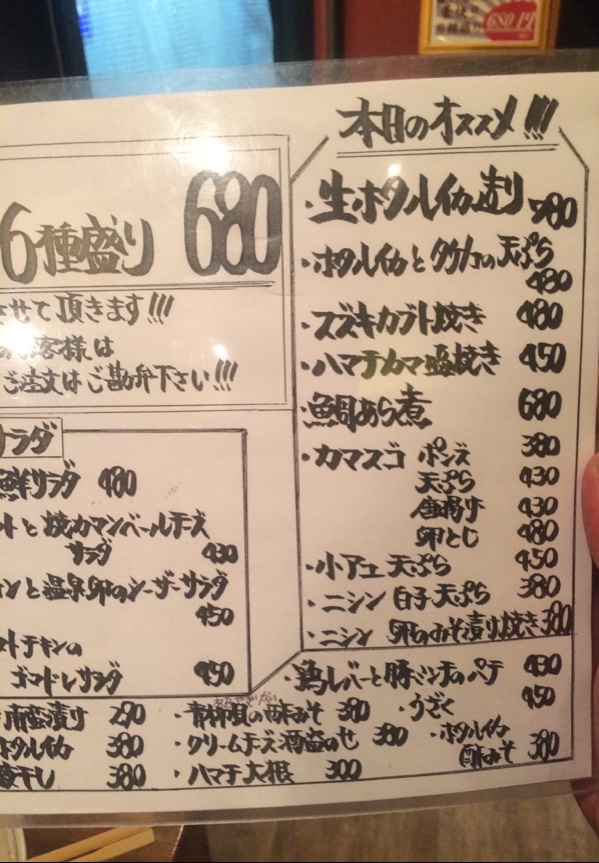 680円
本日のオススメ!!!
6種盛り 680
させて頂きます!!!
お客様は
ご注文はご勘弁下さい!!!
・生ホタルイカ造り 780
・ホタルイカとタケノコの天ぷら
480
・スズキカブト焼き 480
・ハマチカマ塩焼き 450
・鯛あら煮 680
・カマスゴ ポンズ 380
天ぷら 430
唐揚げ 430
卵とじ 480
・小アユ天ぷら 450
・ニシン白子天ぷら 380
・ニシン 卵のみそ漬け焼き 380
サラダ
鮮サラダ 480
トと焼カマンベールチーズ
サラダ 430
ンと温泉卵のシーザーサラダ
450
トチキンの
ゴマドレサラダ 450
・鶏レバーと豚ミンチのパテ 430
南蛮漬け 290
・青柳の酢みそ 380
・うざく 450
ホタルイカ 380
・クリームチーズ酒盗のせ 380
・ホタルイカ
酢みそ 380
干し 380
・ハマチ大根 300